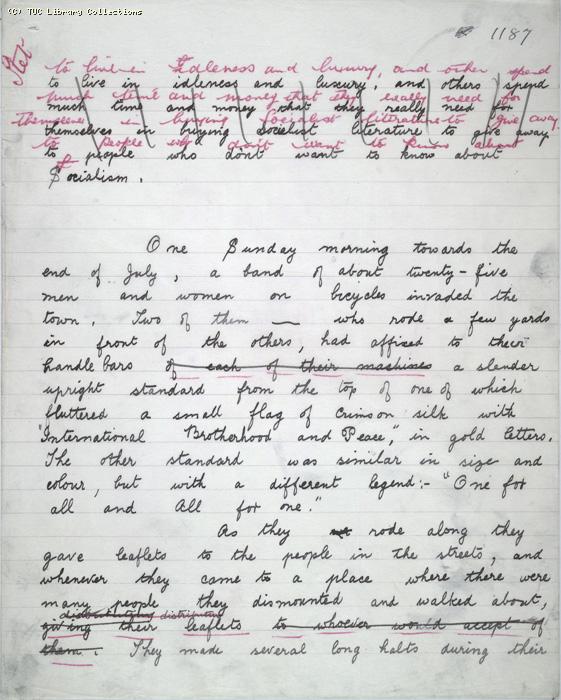 (C) TUC Library Collections
1187
Stet
to live in Idleness and luxury, and other spend
to live in idleness and luxury, and others spend
much time and money that they really need for
much time and money that they really need for
themselves in buying socialist literature to give away
themselves in buying Socialist literature to give away
to people who don't want to know about
to people who don't want to know about
Socialism.
One Sunday morning towards the
end of July, a band of about twenty-five
men and women on bicycles invaded the
town. Two of them — who rode a few yards
in front of the others, had affixed to their
handle bars of each of their machines a slender
upright standard from the top of one of which
fluttered a small flag of crimson silk with
"International Brotherhood and Peace," in gold letters.
The other standard was similar in size and
colour, but with a different legend:- "One for
all and All for one."
As they rode along they
gave leaflets to the people in the streets, and
whenever they came to a place where there were
many people they dismounted and walked about,
distributing
giving their leaflets to whoever would accept of
them. They made several long halts during their